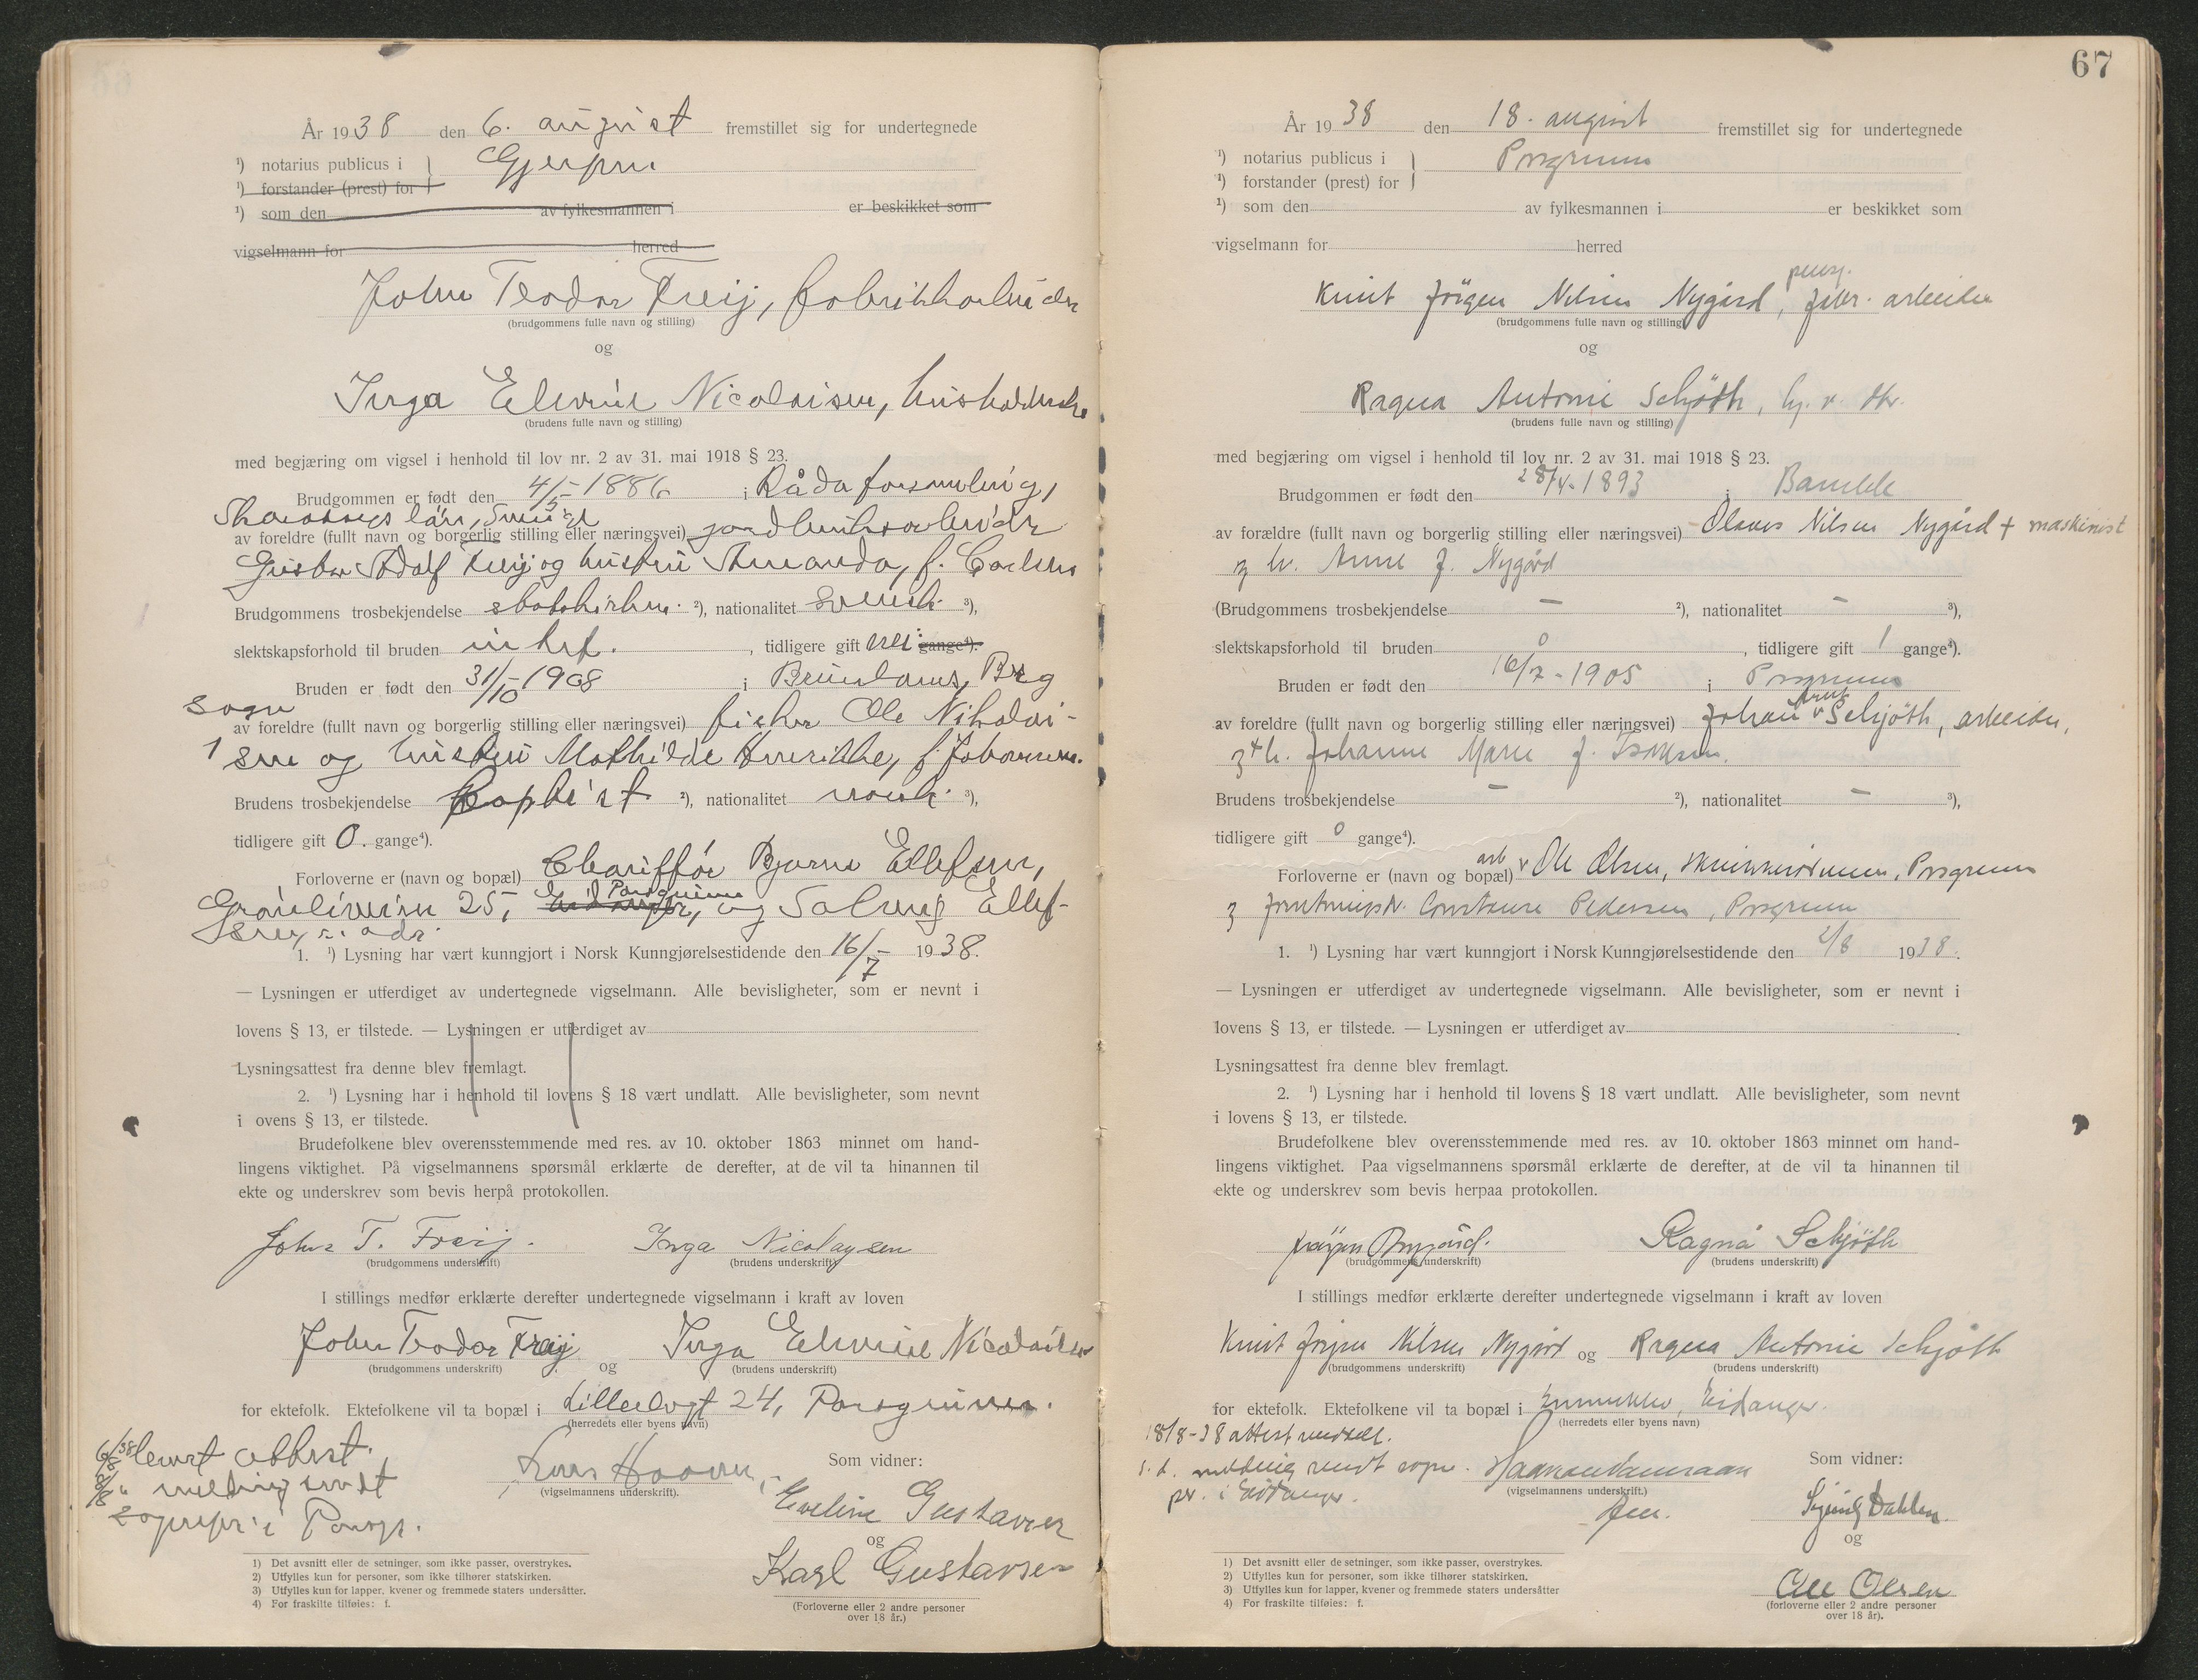 År 1938 den 6. august fremstillet sig for undertegnede
¹) notarius publicus i } Gjerpen
¹) forstander (prest) for
¹) som den av fylkesmannen i er beskikket som
vigselmann for herred
John Teodor Freij, fabrikkarbeider
(brudgommens fulle navn og stilling)
og
Inga Elvine Nicolaisen, husholderske
(brudens fulle navn og stilling)
med begjæring om vigsel i henhold til lov nr. 2 av 31. mai 1918 § 23.
Brudgommen er født den 4/5-1886 i Råda forsamling,
Skaraborgs län, Sverige
av foreldre (fullt navn og borgerlig stilling eller næringsvei) jordbruksarbeider
Gustav Adolf Freij og hustru Amanda, f. Carlsen
Brudgommens trosbekjendelse statskirken. ²), nationalitet svensk. ³),
slektskapsforhold til bruden intet. , tidligere gift nei gange⁴).
Bruden er født den 31/10-1908 i Brunlanes, Brg
sogn
av foreldre (fullt navn og borgerlig stilling eller næringsvei) fisker Ole Nikolai-
sen og hustru Mathilde Henrikke, f. Johannesen.
Brudens trosbekjendelse Baptist ²), nationalitet norsk. ³),
tidligere gift 0. gange⁴).
Forloverne er (navn og bopæl) Chauffør Bjarne Ellefsen,
Grønliveien 25, Eidanger, Porsgrunn og Solveig Ellef-
sen, s. adr.
1. ¹) Lysning har vært kunngjort i Norsk Kunngjørelsestidende den 16/7- 1938.
— Lysningen er utferdiget av undertegnede vigselmann. Alle bevisligheter, som er nevnt i
lovens § 13, er tilstede. — Lysningen er utferdiget av
Lysningsattest fra denne blev fremlagt.
2. ¹) Lysning har i henhold til lovens § 18 vært undlatt. Alle bevisligheter, som nevnt
i ovens § 13, er tilstede.
Brudefolkene blev overensstemmende med res. av 10. oktober 1863 minnet om hand-
lingens viktighet. På vigselmannens spørsmål erklærte de derefter, at de vil ta hinannen til
ekte og underskrev som bevis herpå protokollen.
John T. Freij. Inga Nicolaysen
(brudgommens underskrift) (brudens underskrift)
I stillings medfør erklærte derefter undertegnede vigselmann i kraft av loven
John Teodor Freij og Inga Elvine Nicolaisen
(brudgommens underskrift) (brudens underskrift)
for ektefolk. Ektefolkene vil ta bopæl i Lilleelvgt 24, Porsgrunn.
(herredets eller byens navn)
6/8 38 levert attest.
8/8 " melding sendt
sogneprl. i Porsgr.
(vigselmannens underskrift).
Som vidner:
Eveline Gustavsen
og
Karl Gustavsen
(Forloverne eller 2 andre personer
over 18 år.)
1) Det avsnitt eller de setninger, som ikke passer, overstrykes.
2) Utfylles kun for personer, som ikke tilhører statskirken.
3) Utfylles kun for lapper, kvener og fremmede staters undersåtter.
4) For fraskilte tilføies: f.
67
År 1938 den 18. august fremstillet sig for undertegnede
¹) notarius publicus i } Porsgrunn
¹) forstander (prest) for
¹) som den av fylkesmannen i er beskikket som
vigselmann for herred
Knut Jörgen Nilsen Nygård, pens. fabr. arbeider
(brudgommens fulle navn og stilling)
og
Ragna Antonie Schjøth, hj. v. dtr.
(brudens fulle navn og stilling)
med begjæring om vigsel i henhold til lov nr. 2 av 31. mai 1918 § 23.
Brudgommen er født den 28/4-1893 i Bamble
av forældre (fullt navn og borgerlig stilling eller næringsvei) Olaves Nilsen Nygård + maskinist
og h. Anne J. Nygård
(Brudgommens trosbekjendelse — ²), nationalitet — ³),
slektskapsforhold til bruden 0 , tidligere gift 1 gange⁴).
Bruden er født den 16/7-1905 i Porsgrunn
av foreldre (fullt navn og borgerlig stilling eller næringsvei) Johan Schjöth, arbeider,
og + h. Johanne Marie f. Isaksen.
Brudens trosbekjendelse — ²), nationalitet — ³),
tidligere gift 0 gange⁴).
Forloverne er (navn og bopæl) arb Ole Olsen, Porsgrunn
og Constanse Pedersen, Porsgrunn
1. ¹) Lysning har vært kunngjort i Norsk Kunngjørelsestidende den 2/8 1938.
— Lysningen er utferdiget av undertegnede vigselmann. Alle bevisligheter, som er nevnt i
lovens § 13, er tilstede. — Lysningen er utferdiget av
Lysningsattest fra denne blev fremlagt.
2. ¹) Lysning har i henhold til lovens § 18 vært undlatt. Alle bevisligheter, som nevnt
i lovens § 13, er tilstede.
Brudefolkene blev overensstemmende med res. av 10. oktober 1863 minnet om hand-
lingens viktighet. Paa vigselmannens spørsmål erklærte de derefter, at de vil ta hinannen til
ekte og underskrev som bevis herpaa protokollen.
Jörgen Nygård. Ragna Schjøth
(brudgommens underskrift) (brudens underskrift)
I stillings medfør erklærte derefter undertegnede vigselmann i kraft av loven
Knut Jörgen Nilsen Nygård og Ragna Antonie Schjöth
(brudgommens underskrift) (brudens underskrift)
for ektefolk. Ektefolkene vil ta bopæl i Eidanger.
(herredets eller byens navn)
18/8-38 attest meddelt.
s. d. melding sendt sogne-
pr. i Eidanger.
(vigselmannens underskrift.)
Som vidner:
Signy Dahlen.
og
Ole Olsen
(forloverne eller 2 andre personer
over 18 år).
1) Det avsnitt eller de setninger, som ikke passer, overstrykes.
2) Utfylles kun for personer, som ikke tilhører statskirken.
3) Utfylles kun for lapper, kvener og fremmede staters undersåtter
4) For fraskilte tilføies: f.